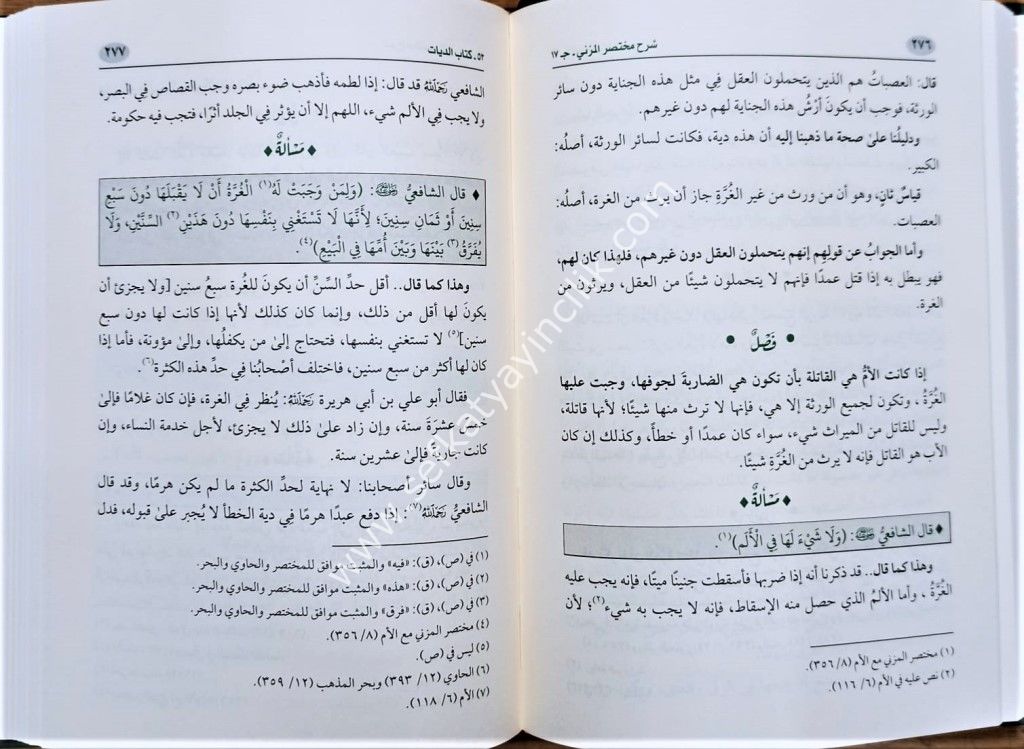 ٢٧٦
شرح مختصر المزني ـ جـ ١٧
قال: العصباتُ هم الذين يتحملون العقل فِي مثل هذه الجناية دون سائر
الورثة، فوجب أن يكونَ أرْشُ هذه الجناية لهم دون غيرهم.
ودليلُنا علىٰ صحة ما ذهبنا إليه أن هذه دية، فكانت لسائر الورثة، أصلُه:
الكبير.
قياسٌ ثانٍ، وهو أن من ورث من غير الغُرَّةِ جاز أن يرث من الغرة، أصلُه:
العصبات.
وأما الجوابُ عن قولِهم إنهم يتحملون العقل دون غيرهم، فلهذا كان لهم،
فهو يبطل به إذا قتل عمدًا فإنهم لا يتحملون شيئًا من العقل، ويرثون من
الغرة.
• فَصْلٌ •
إذا كانت الأمُّ هي القاتلة بأن تكون هي الضاربةَ لجوفها، وجبت عليها
الغُرَّةُ، وتكون لجميع الورثة إلا هي، فإنها لا ترث منها شيئًا؛ لأنها قاتلة،
وليس للقاتل من الميراث شيء، سواء كان عمدًا أو خطأً، وكذلك إن كان
الأب هو القاتل فإنه لا يرث من الغُرَّةِ شيئًا.
♦ مَسْألةٌ ♦
♦ قال الشافعيُّ ﵁: (وَلَا شَيْءَ لَهَا فِي الْأَلَمِ)(١).
وهذا كما قال.. قد ذكرنا أنه إذا ضربها فأسقطت جنينًا ميتًا، فإنه يجب عليه
الغُرَّةُ، وأما الألمُ الذي حصل منه الإسقاط، فإنه لا يجب به شيء(٢)؛ لأن
(١) مختصر المزني مع الأم (٨/ ٣٥٦).
(٢) نص عليه في الأم (٦/ ١١٦).
٥٢ـ كتاب الديات
٢٧٧
الشافعي ﵀ قد قال: إذا لطمه فأذهب ضوء بصره وجب القصاص في البصر،
ولا يجب فِي الألم شيء، اللهم إلا أن يؤثر في الجلد أثرًا، فتجب فيه حكومة.
♦ مَسْألةٌ ♦
♦ قال الشافعيُّ ﵁: (وَلِمَنْ وَجَبَتْ لَهُ(١) الْغُرَّةُ أَنْ لَا يَقْبَلَهَا دُونَ سَبْعِ
سِنِينَ أَوْ ثَمَانِ سِنِينَ؛ لِأَنَّهَا لَا تَسْتَغْنِي بِنَفْسِهَا دُونَ هَذَيْنِ(٢) السِّنَّيْنِ، وَلَا
يُفَرَّقُ(٣) بَيْنَهَا وَبَيْنَ أُمِّهَا فِي الْبَيْعِ)(٤).
وهذا كما قال.. أقل حدِّ السِّنِّ أن يكونَ للغُرة سبعُ سنين [ولا يجزئ أن
يكونَ لها أقل من ذلك، وإنما كان كذلك لأنها إذا كانت لها دون سبع
سنين](٥) لا تستغني بنفسها، فتحتاج إلىٰ من يكفلُها، وإلىٰ مؤونة، فأما إذا
كان لها أكثر من سبع سنين، فاختلف أصْحابُنا فِي حدِّ هذه الكثرة(٦).
فقال أبو علي بن أبي هريرة ﵀: يُنظر في الغرة، فإن كان غلامًا فإلىٰ
خمسَ عشرَةَ سنة، وإن زاد علىٰ ذلك لا يجزئ، لأجل خدمة النساء، وإن
كانت جاريةً فإلىٰ عشرين سنة.
وقال سائر أصحابنا: لا نهاية لحدِّ الكثرة ما لم يكن هرمًا، وقد قال
الشافعيُّ ﵀(٧): إذا دفع عبدًا هرمًا فِي دية الخطأ لا يُجبر علىٰ قبوله، فدل
(١) في (ص)، (ق): «فيه» والمثبت موافق للمختصر والحاوي والبحر.
(٢) في (ص)، (ق): «هذه» والمثبت موافق للمختصر والحاوي والبحر.
(٣) في (ص)، (ق): «فرق» والمثبت موافق للمختصر والحاوي والبحر.
(٤) مختصر المزني مع الأم (٨/ ٣٥٦).
(٥) ليس في (ص).
(٦) الحاوي (١٢/ ٣٩٣) وبحر المذهب (١٢/ ٣٥٩).
(٧) الأم (٦/ ١١٨).
www.serkatyayincilik.com